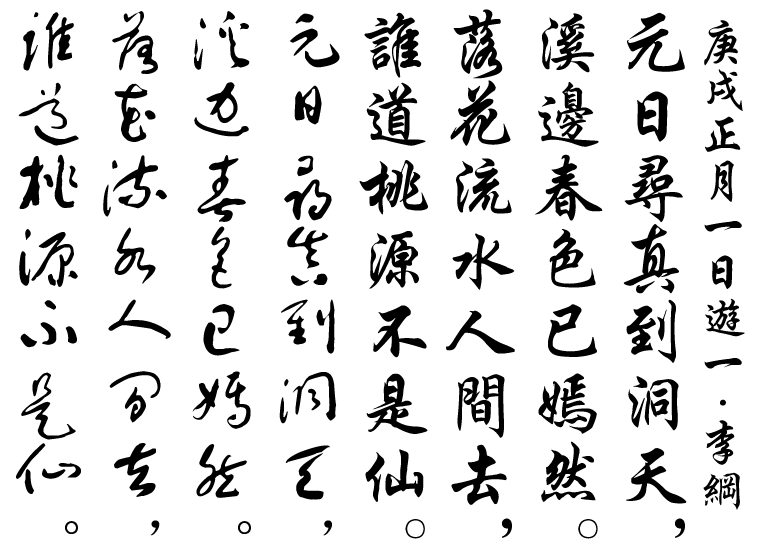 庚戌正月一日遊一·李綱
元日尋真到洞天，
溪邊春色已嫣然。
落花流水人間去，
誰道桃源不是仙。
元日尋真到洞天，
溪邊春色已嫣然。
落花流水人間去，
誰道桃源不是仙。